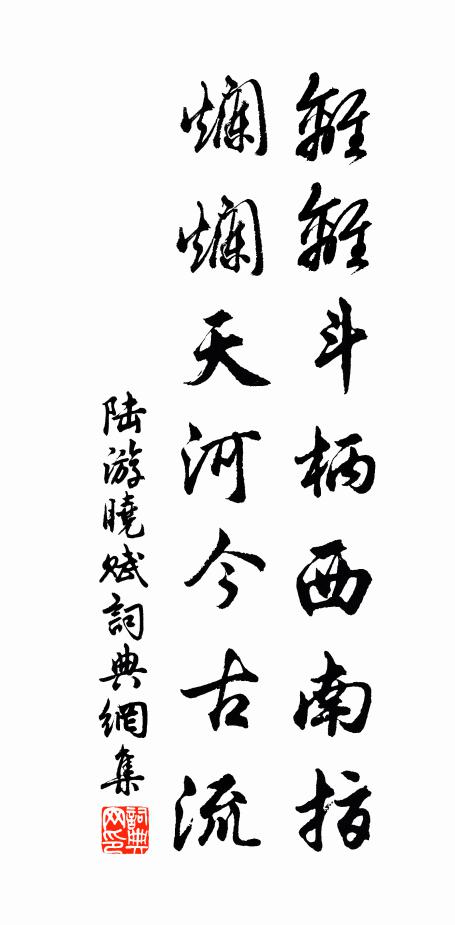 離離斗柄西南指
爛爛天河今古流
陸游曉賦詞典網集
詞典網印